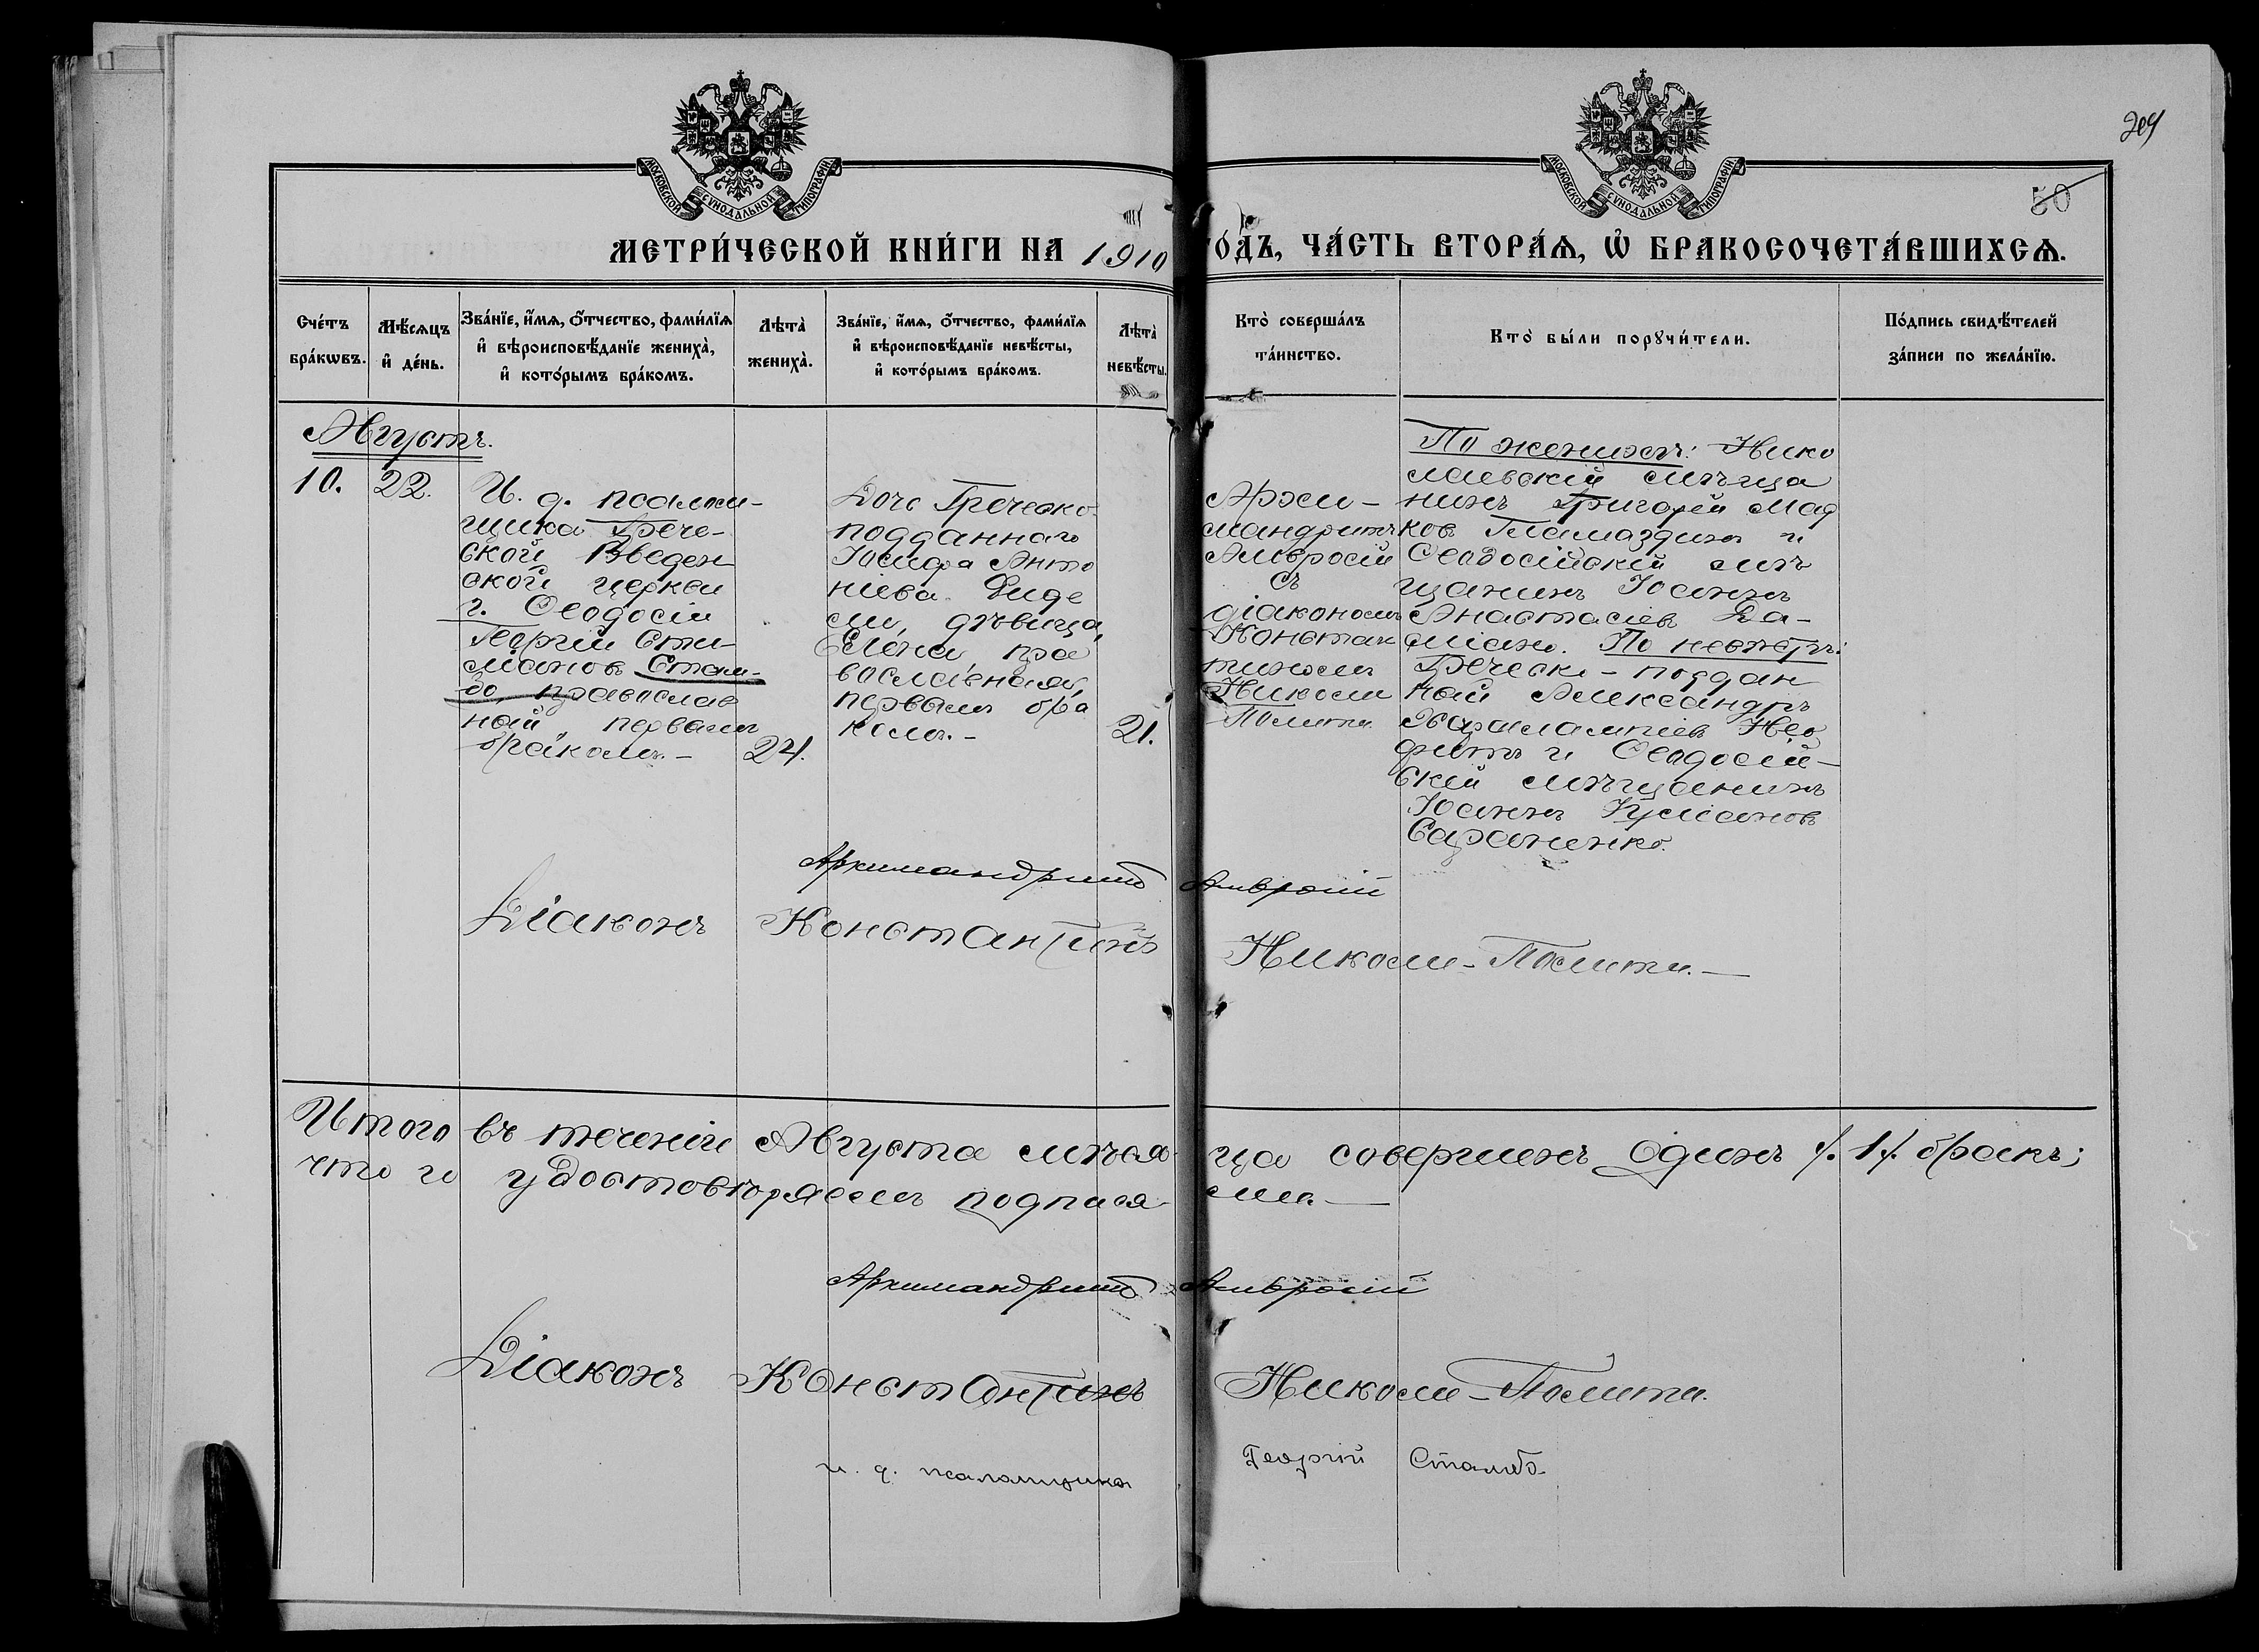 МОСКОВСКОЙ СѴНОДАЛЬНОЙ ТИПОГРАФІИ
МОСКОВСКОЙ СѴНОДАЛЬНОЙ ТИПОГРАФІИ
209
50
МЕТРИ́ЧЕСКОЙ КНИ́ГИ НА 1910
ГО́ДЪ, ЧА́СТЬ ВТОРА́Ѧ, Ѽ БРАКОСОЧЕТА́ВШИХСѦ.
Сче́тъ бра́кѡвъ.
Мѣ́сѧцъ и҆ де́нь.
Зва́нїе, и҆́мѧ, ѻ҆́тчество, фами́лїѧ и҆ вѣроисповѣ́данїе жениха̀, и҆ кото́рымъ бра́комъ.
Лѣта̀ жениха̀.
Зва́нїе, и҆́мѧ, ѻ҆́тчество, фами́лїѧ и҆ вѣроисповѣ́данїе невѣ́сты, и҆ кото́рымъ бра́комъ.
Лѣта̀ невѣ́сты.
Кто̀ соверша́лъ та́инство.
Кто̀ бы́ли порꙋчи́тели.
По́дпись свидѣ́телей за́писи по жела́нїю.
Августъ.
10. 22.
И. д. псалом-
щика Грече-
ской Введен
ской церкви
г. Ѳеодосіи
Георгій Сти-
ліановъ Стам-
бо, православ
ный, первымъ
бракомъ.-
24.
Дочь Греческо-
подданнаго
Іосифа Анто
ніева Диде
ли, дѣвица,
Елена, пра
вославная,
первымъ бра
комъ.-
21.
Архи-
мандритъ
Амвросій
съ
діакономъ
Константи
тиномъ
Николи
Полити.
По женихѣ: Нико
лаевскій мѣща
нинъ Григорій
и
Ѳеодосійскій мѣ
щанинъ Іоаннъ
Анастасіевъ Да-
міано. По невѣстѣ:
Греческо-поддан
ный Александръ
Харалампіевъ Нео
фитъ и Ѳеодосій-
скій мѣщанинъ
Іоаннъ
Сараненко.
Архимандритъ Амвросій
Діаконъ Константинъ Николи-Полити.-
Итого въ теченіи Августа мѣся-ца совершенъ одинъ /.1/. бракъ;
что и удостовѣряемъ подпися-ми.-
Архимандритъ Амвросій
Діаконъ Константинъ Николи-Полити.
и. д. псаломщика Георгій Стамбо